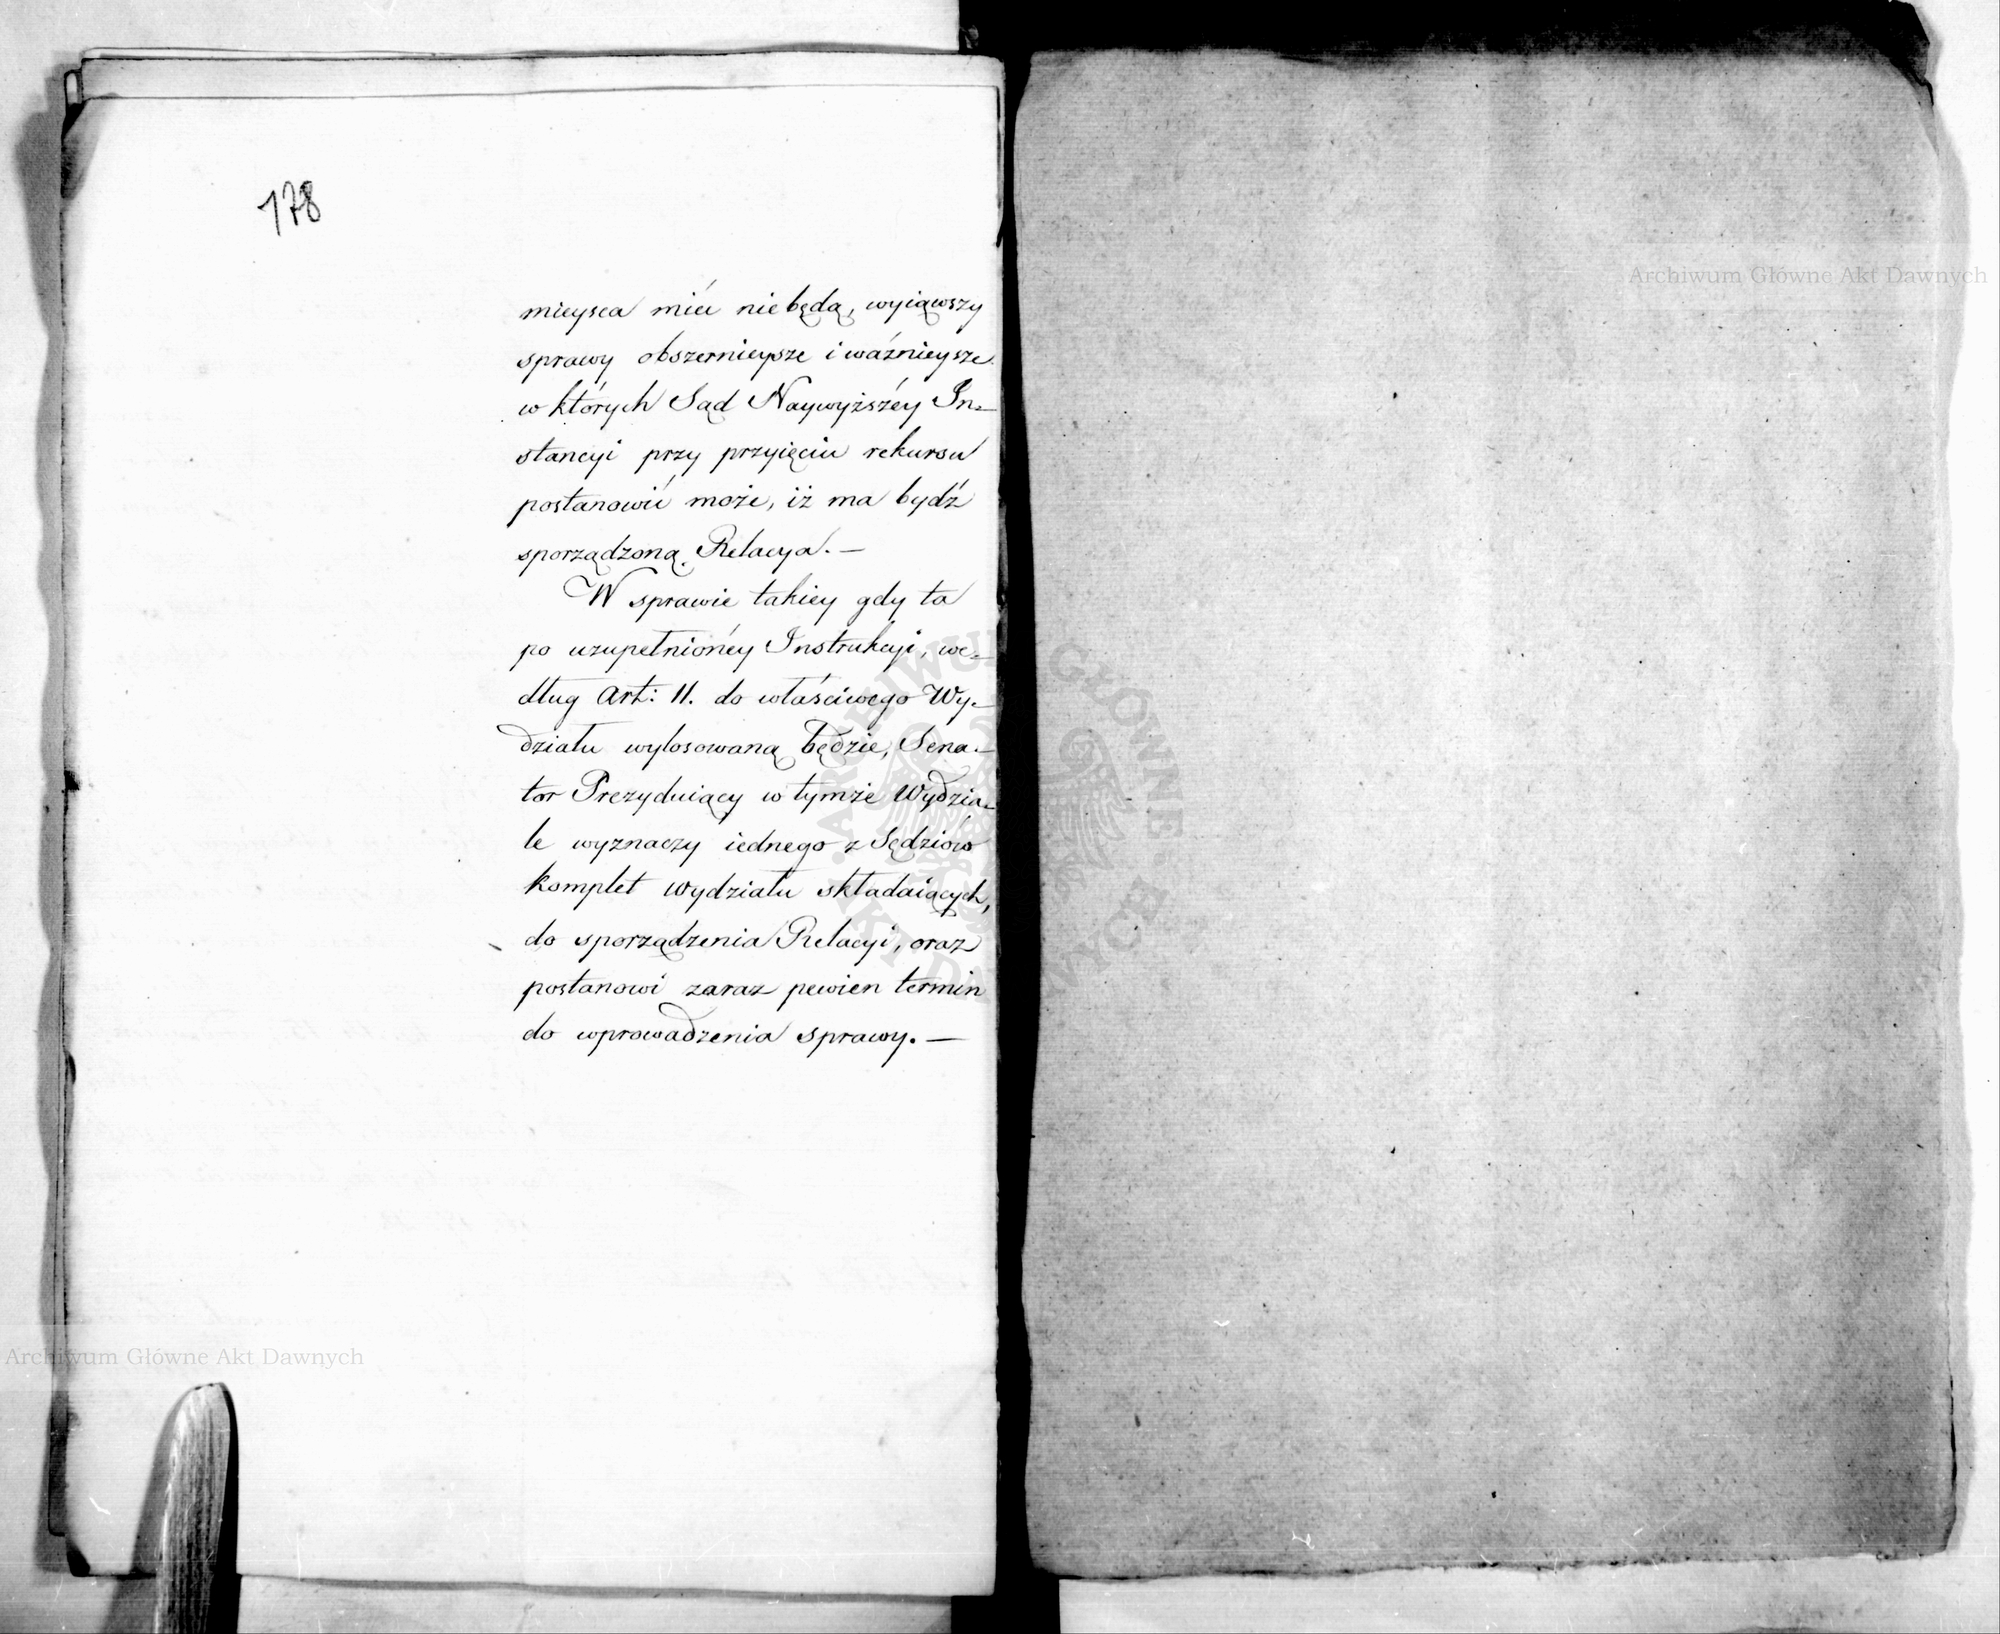 178
mieysca mieć nie będą, wyiąwszy
sprawy obszernieysze i ważnieysze
w których Sąd Naywyższéy In-
stancyi przy przyięciu rekursu
postanowić może, iż ma bydź
sporządzoną Relacya. —
W sprawie takiey gdy ta
po uzupełnionéy Instrukcyi, we-
dług Art: 11. do właściwego Wy-
działu wylosowaną będzie, Sena-
tor Prezyduiący w tymże Wydzia-
le wyznaczy iednego z Sędziów
komplet Wydziału składaiących,
do sporządzenia Relacyi, oraz
postanowi zaraz pewien termin
do wprowadzenia sprawy. —
Archiwum Główne Akt Dawnych
Archiwum Główne Akt Dawnych
ARCHIWUM GŁÓWNE AKT DAWNYCH